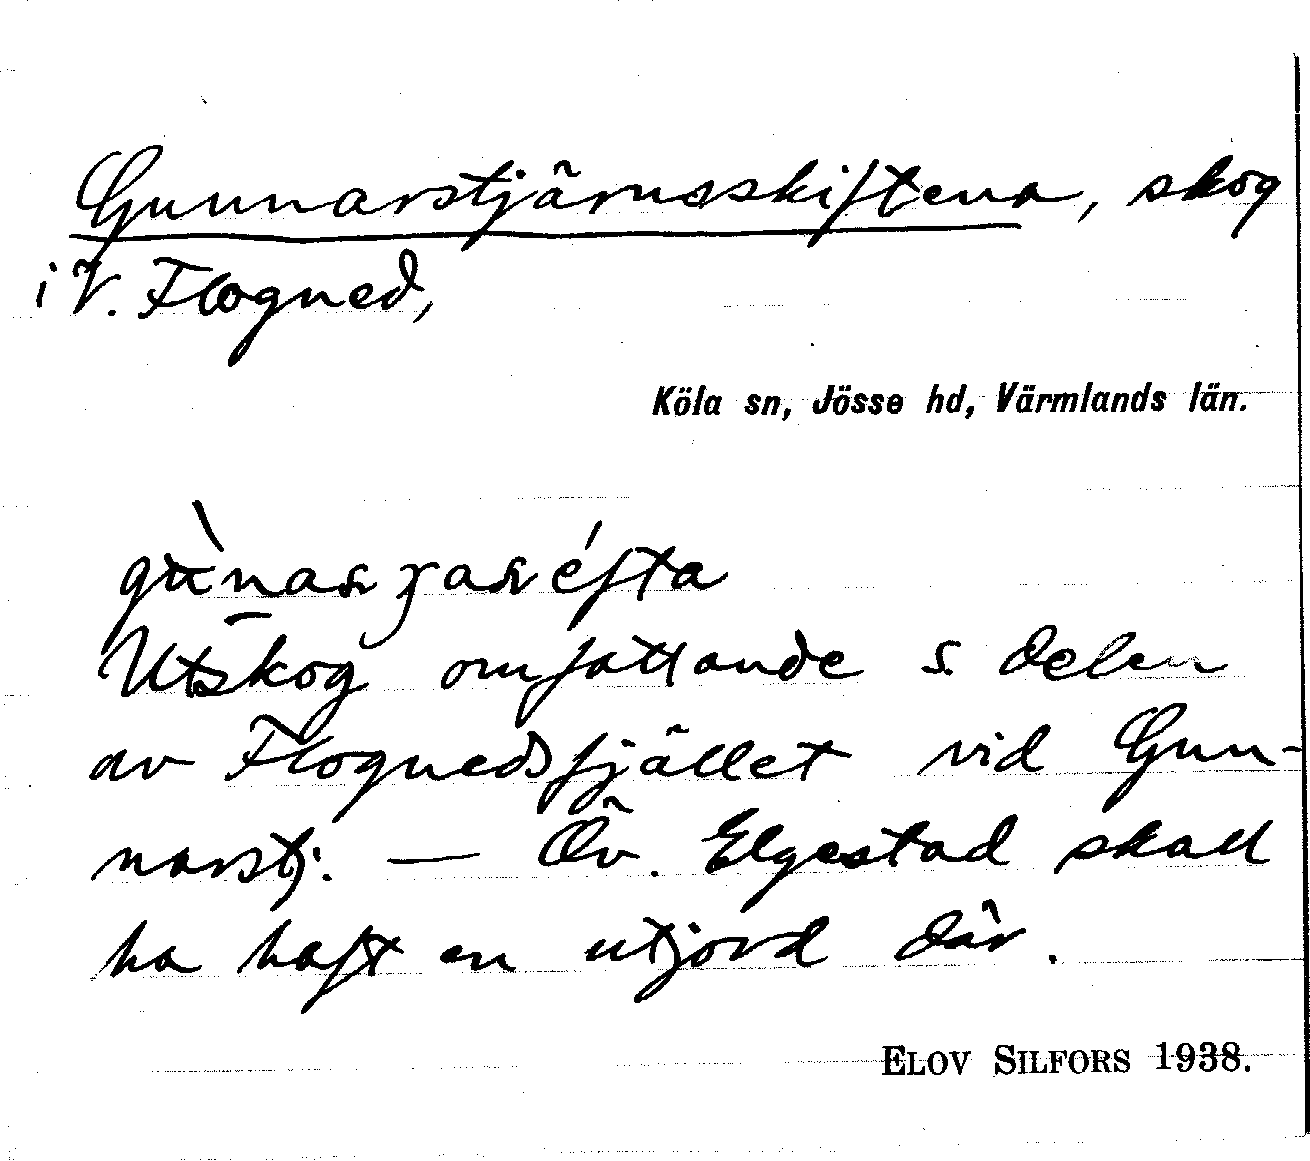 Gunnarstjärnsskiftena, skog
i V. Flogned,
Köla sn, Jösse hd, Värmlands län.
Utskog omfattande s. delen
av Flognedsfjället vid Gun-
narstj. — Öv. Elgestad skall
ha haft en utjord där.
ELOV SILFORS 1938.